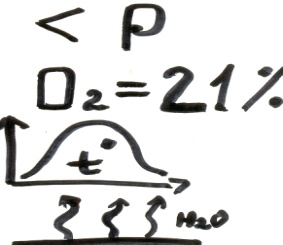 < P
O₂=21%
t°
H₂O